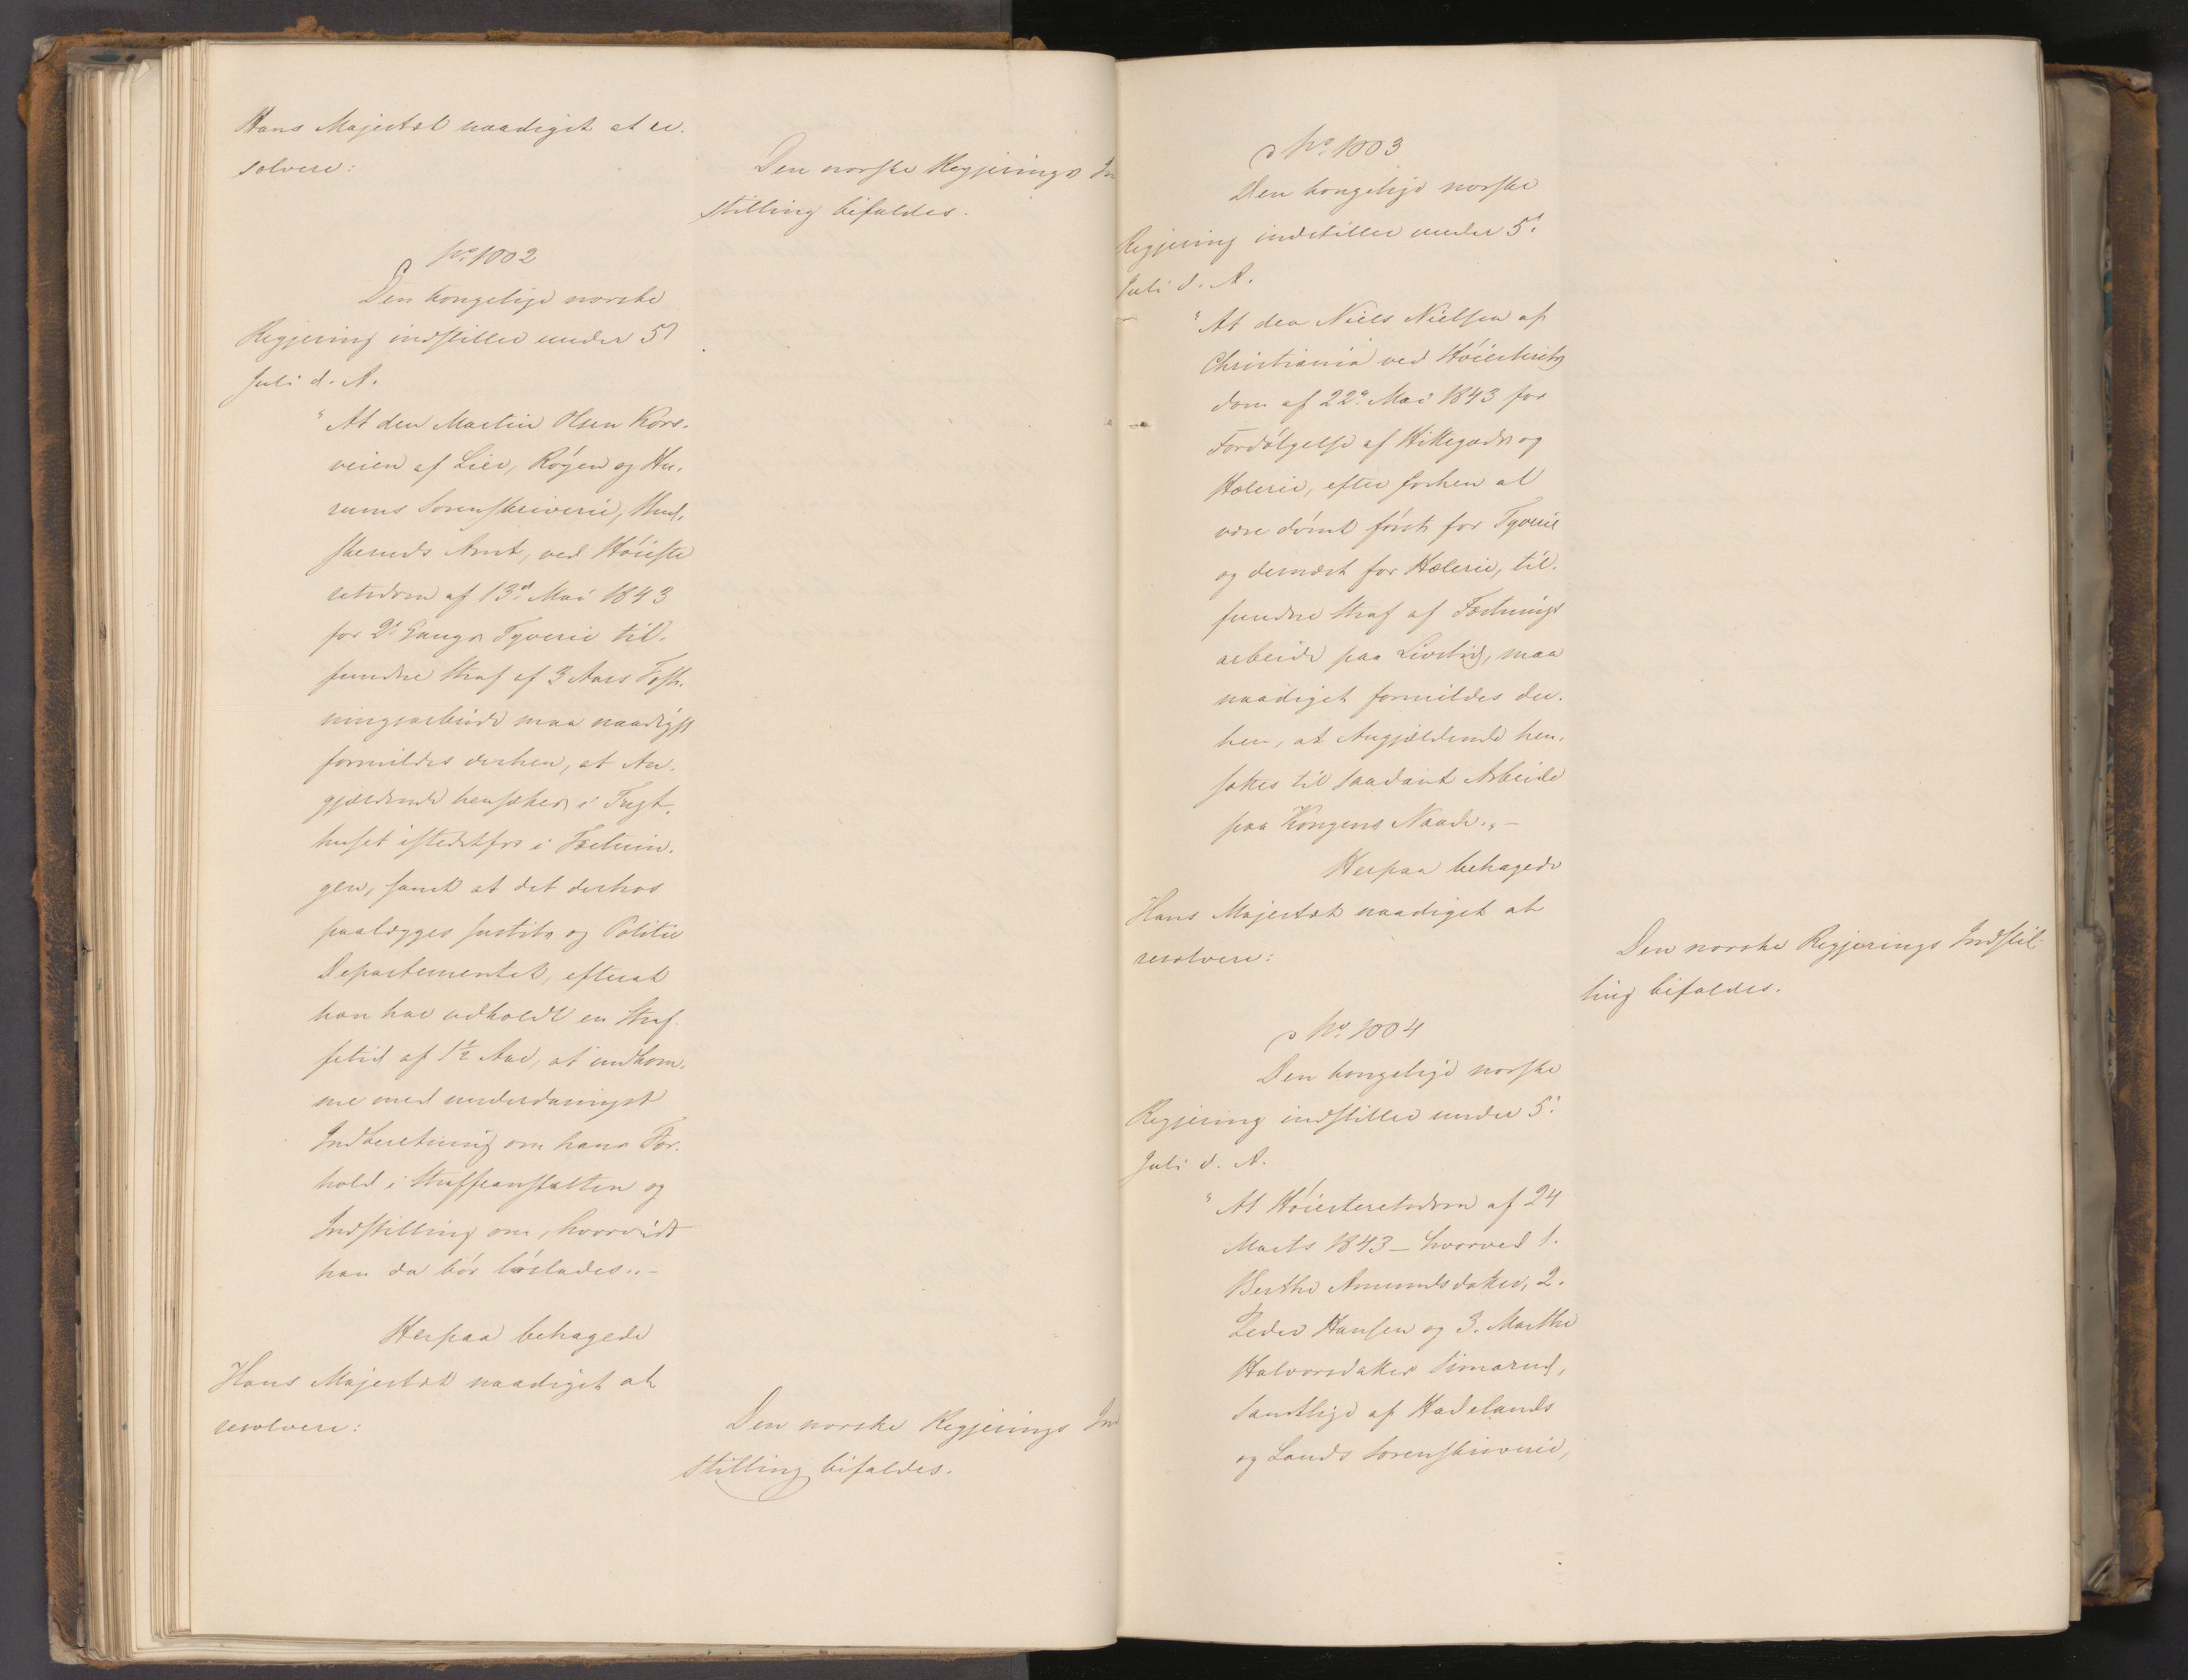 Hans Majestæt naadigst at re-
solvere:
Den norske Regjerings In
stilling bifaldes.
No 1002
Den kongelige norske
Regjering indstiller under 5'
Juli d. A.
"At den Martin Olsen Kors-
veien af Lier, Röyen og Hu-
rums Sorenskriverie, Bud-
skeruds Amt, ved Höieste
retsdom af 13de Mai 1843
for 2' Gangs Tyverie til-
fundne Straf af 3 Aars Fæst-
ningsarbeide maa naadigst
formildes derhen, at An-
gjældende hensættes i Tugt-
huset istedetfor i Fæstnin-
gen, samt at det derhos
paalægges Justits og Politie
Departementet, efterat
han har udholdt en Straf-
fetid af 1½ Aar, at indkom-
me med underdanigst
Indberetning om hans For-
hold i Straffeanstalten og
Indstilling om, hvorvidt
han da bör löslades."-
Herpaa behagede
Hans Majestæt naadigst at
resolvere:
Den norske Regjerings In
stilling bifaldes.
No 1003
Den kongelige norske
Regjering indstiller under 5'
Juli d. A.
"At den Niels Nielsen af
Christiania ved Höiesterets
dom af 22de Mai 1843 for
Fordölgelse af Hittegods og
Hæleri, efter forhen at
være dömt först for Tyverie
og dernæst for Hælerie, til-
fundne Straf af Fæstnings
arbeide paa Livstid, maa
naadigst formildes der-
hen, at Angjældende hen-
sættes til saadant Arbeide
paa Kongens Naade."-
Herpaa behagede
Hans Majestæt naadigst at
resolvere:
Den norske Regjerings Indstil-
ling bifaldes.
No 1004
Den kongelige norske
Regjering indstiller under 5'
Juli d. A.
"At Höiesteretsdom af 24
Marts 1843 – hvorved 1.
Berthe Amundsdatter, 2.
Peder Hansen og 3. Marthe
Halvorsdatter Simarud,
samtlige af Hadelands
og Lands Sorenskriverie,